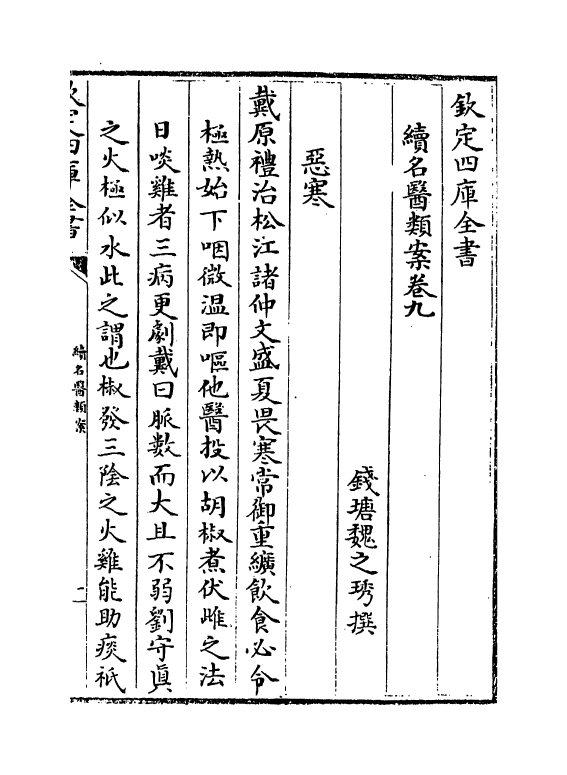 欽定四庫全書
續名醫類案卷九
錢塘魏之琇撰
惡寒
戴原禮治松江諸仲文盛夏畏寒常御重纊飲食必令
極熱始下咽微温即嘔他醫投以胡椒煮伏雌之法
日啖雞者三病更劇戴曰脈數而大且不弱劉守眞
之火極似水此之謂也椒發三隂之火雞能助痰祇
欽定四庫全書
續名醫類案